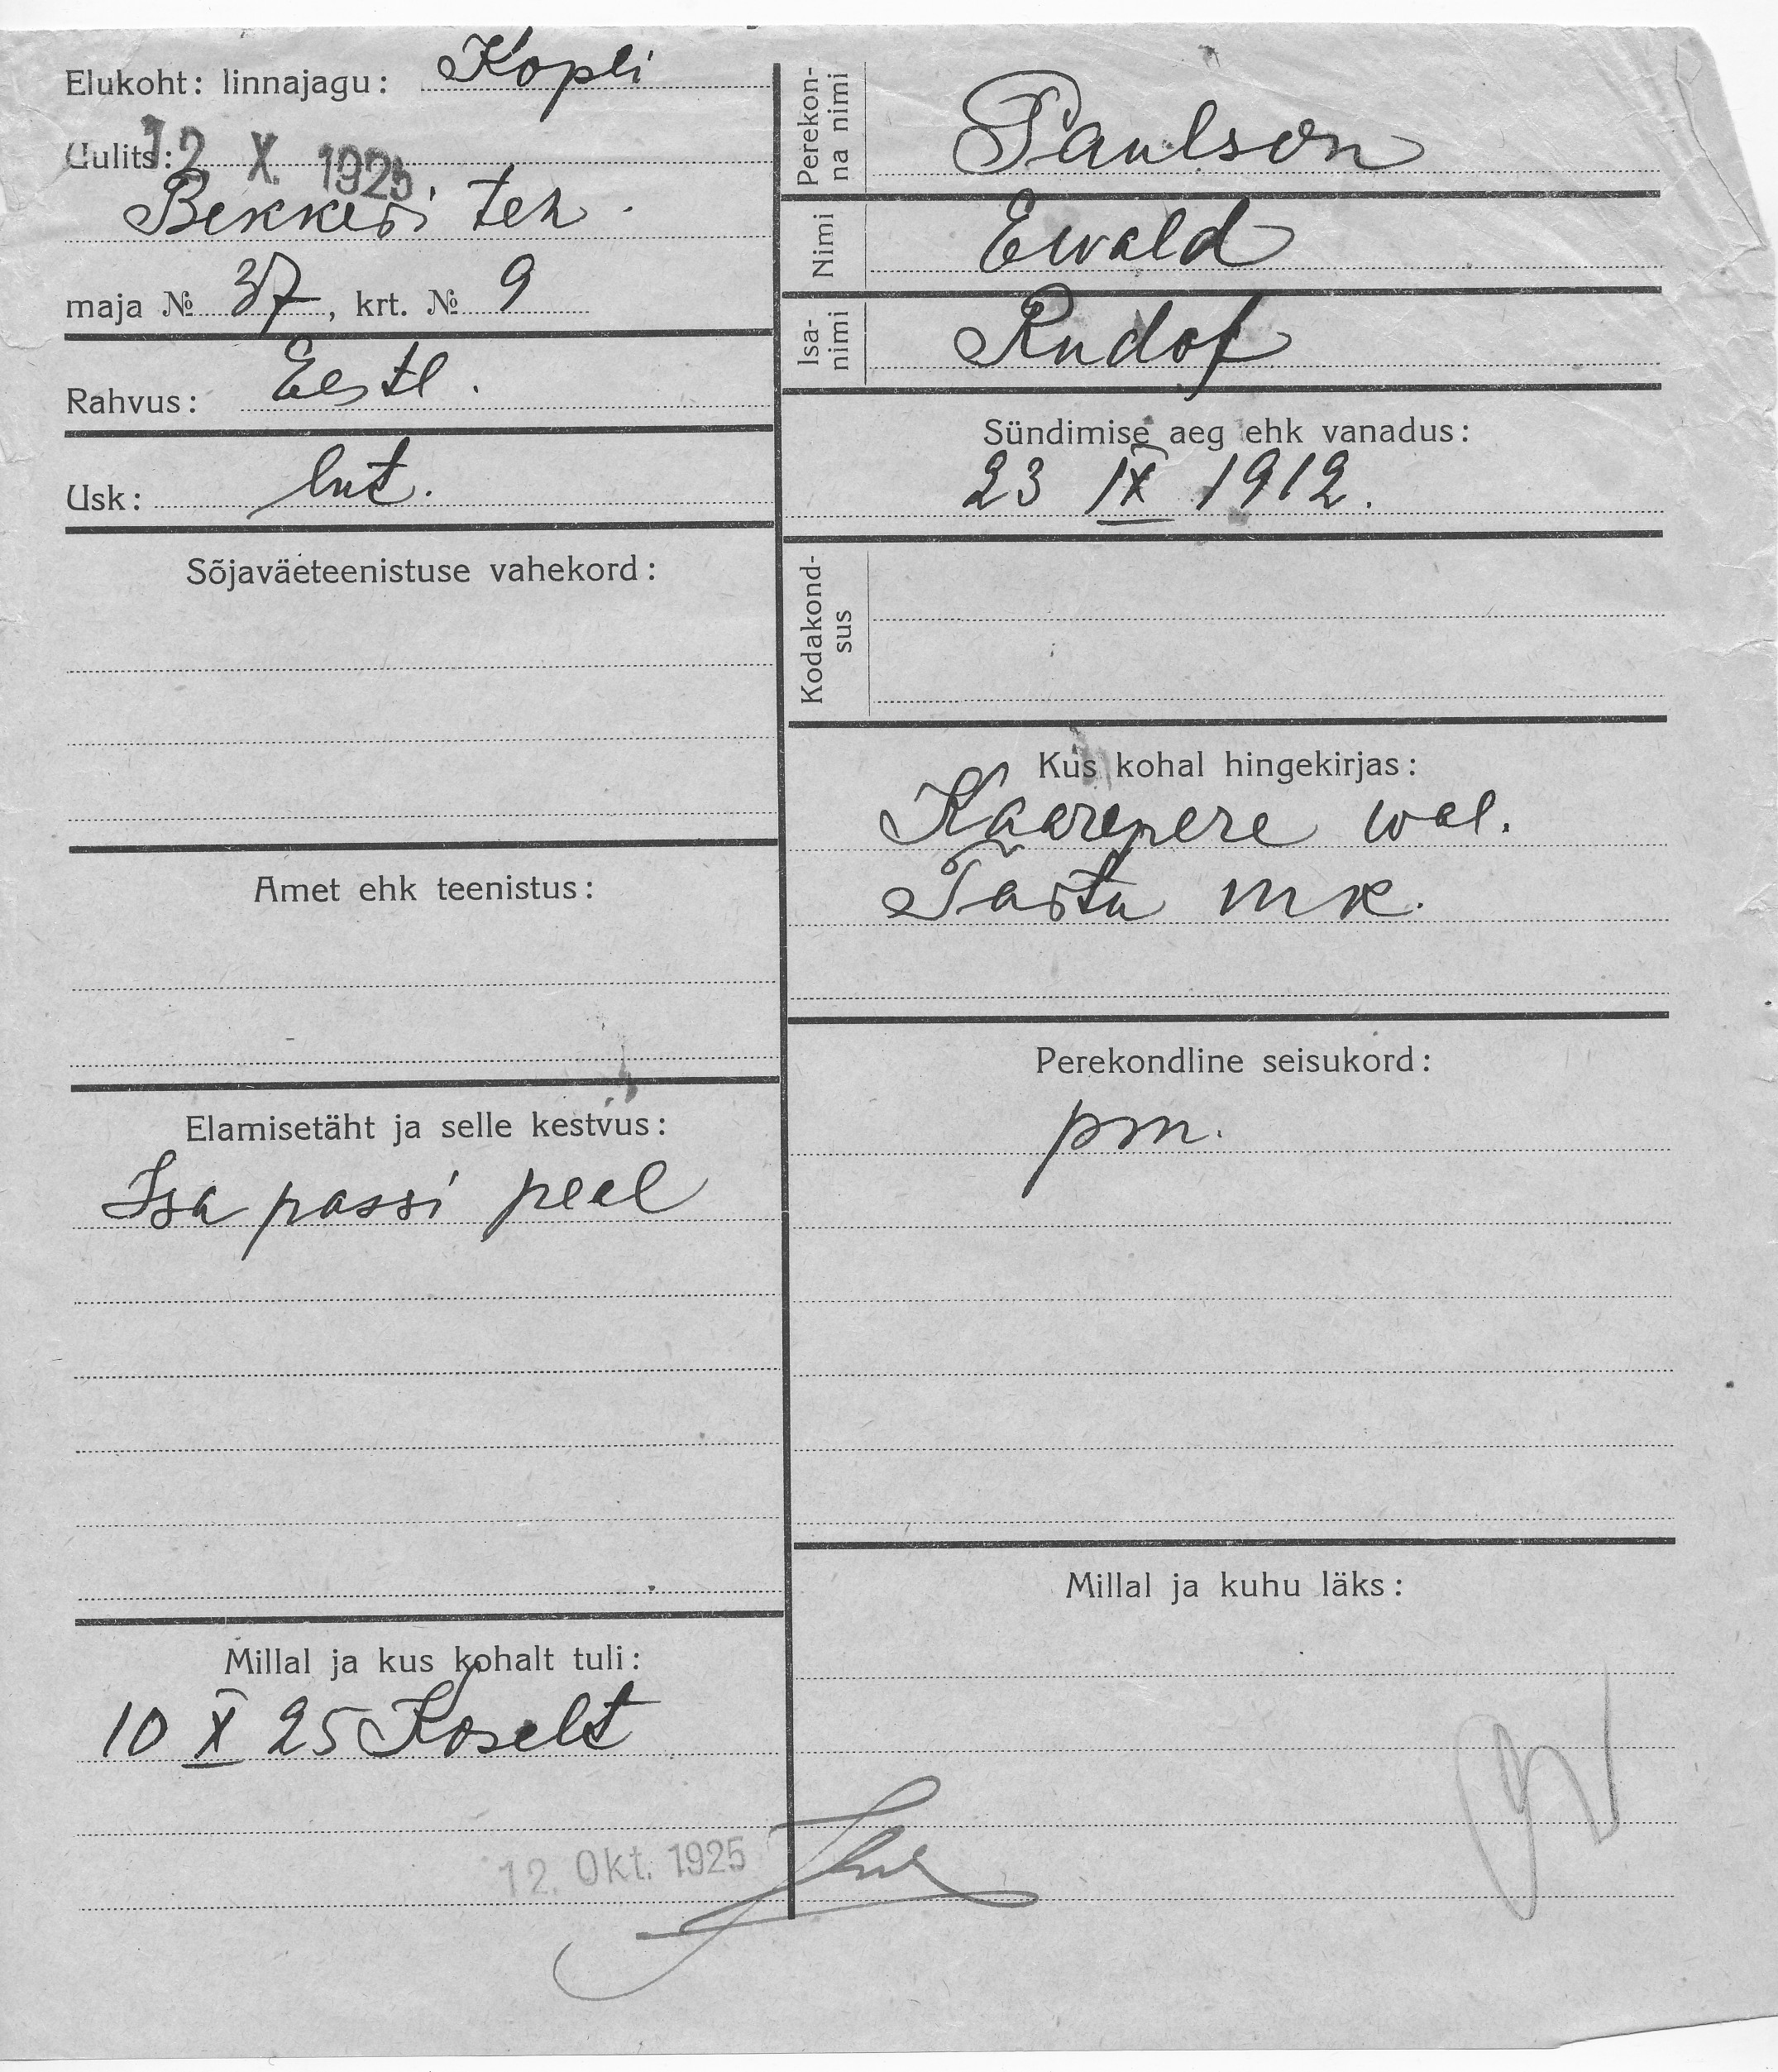 Elukoht: linnajagu: Kopli
Uulits:
12 X. 1925
Bekkeri teh.
maja № 37, krt. № 9
Rahvus: Eestl.
Usk: lut.
Sõjaväeteenistuse vahekord:
Amet ehk teenistus:
Elamisetäht ja selle kestvus:
Isa passi peal
Millal ja kus kohalt tuli:
10 X 25 Koselt
12. Okt. 1925
Perekon-
na nimi
Paulson
Nimi
Ewald
Isa-
nimi
Rudof
Sündimise aeg ehk vanadus:
23 IX 1912.
Kodakond-
sus
Kus kohal hingekirjas:
Kaarepere wal.
Tartu mk.
Perekondline seisukord:
pm.
Millal ja kuhu läks: